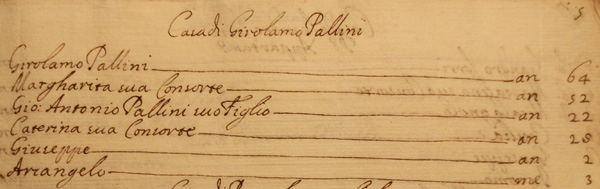 5
Casa di Girolamo Pallini
Girolamo Pallini an 64
Margharita sua Consorte an 52
Gio: Antonio Pallini suo Figlio an 22
Caterina sua Consorte an 28
Giuseppe an 2
Arcangelo me 3